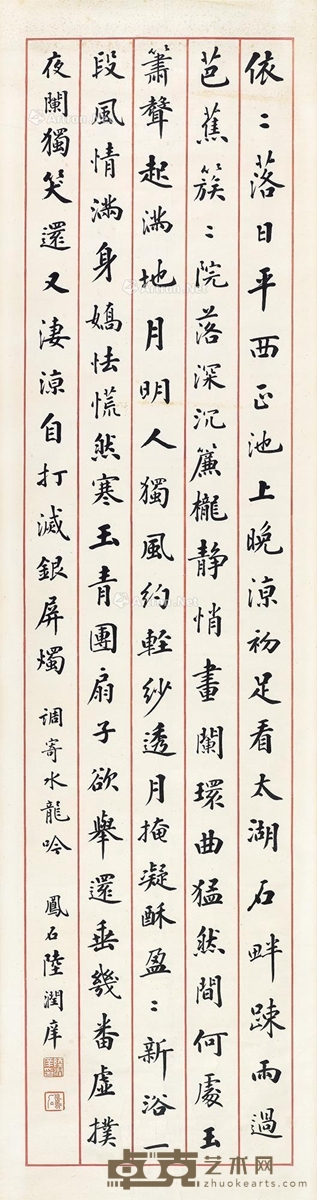 依〻落日平西正池上晚涼初足看太湖石畔疎雨過
芭蕉簇〻院落深沉簾櫳静悄畫闌環曲猛然間何處玉
簫聲起滿地月明人獨風約輕紗透月掩凝酥盈〻新浴一
段風情滿身嬌怯慌然寒玉青團扇子欲舉還垂幾番虛撲
夜闌獨笑還又淒涼自打滅銀屏燭
调寄水龍吟
鳳石陸潤庠
卓克艺术网
www.zhuokearts.com